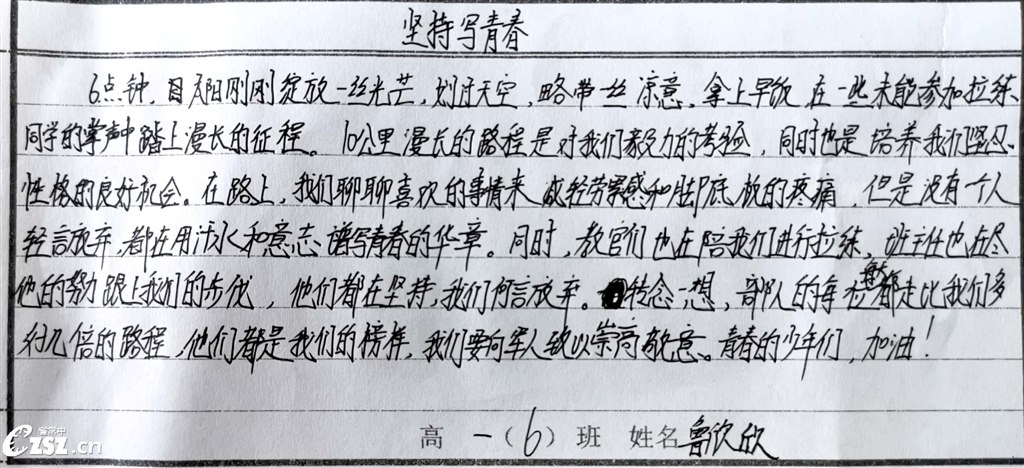 坚持写青春
6点钟,目太阳刚刚绽放一丝光芒,划过天空,略带一丝凉意,拿上早饭,在一些未能参加拉练
同学的掌声中踏上漫长的征程。10公里漫长的路程是对我们毅力的考验,同时也是培养我们坚忍
性格的良好机会。在路上,我们聊聊喜欢的事情来减轻劳累感和脚底板的疼痛,但是没有一个人
轻言放弃,都在用汗水和意志谱写青春的华章。同时,教官们也在陪我们进行拉练,班主任也在尽
他的努力跟上我们的步伐,他们都在坚持,我们何言放弃。转念一想,部队的每位教官都走比我们多
好几倍的路程,他们都是我们的榜样,我们要向军人致以崇高敬意。青春的少年们,加油!
高一(6)班 姓名鲁欣欣
省常中
CZSZ.cn